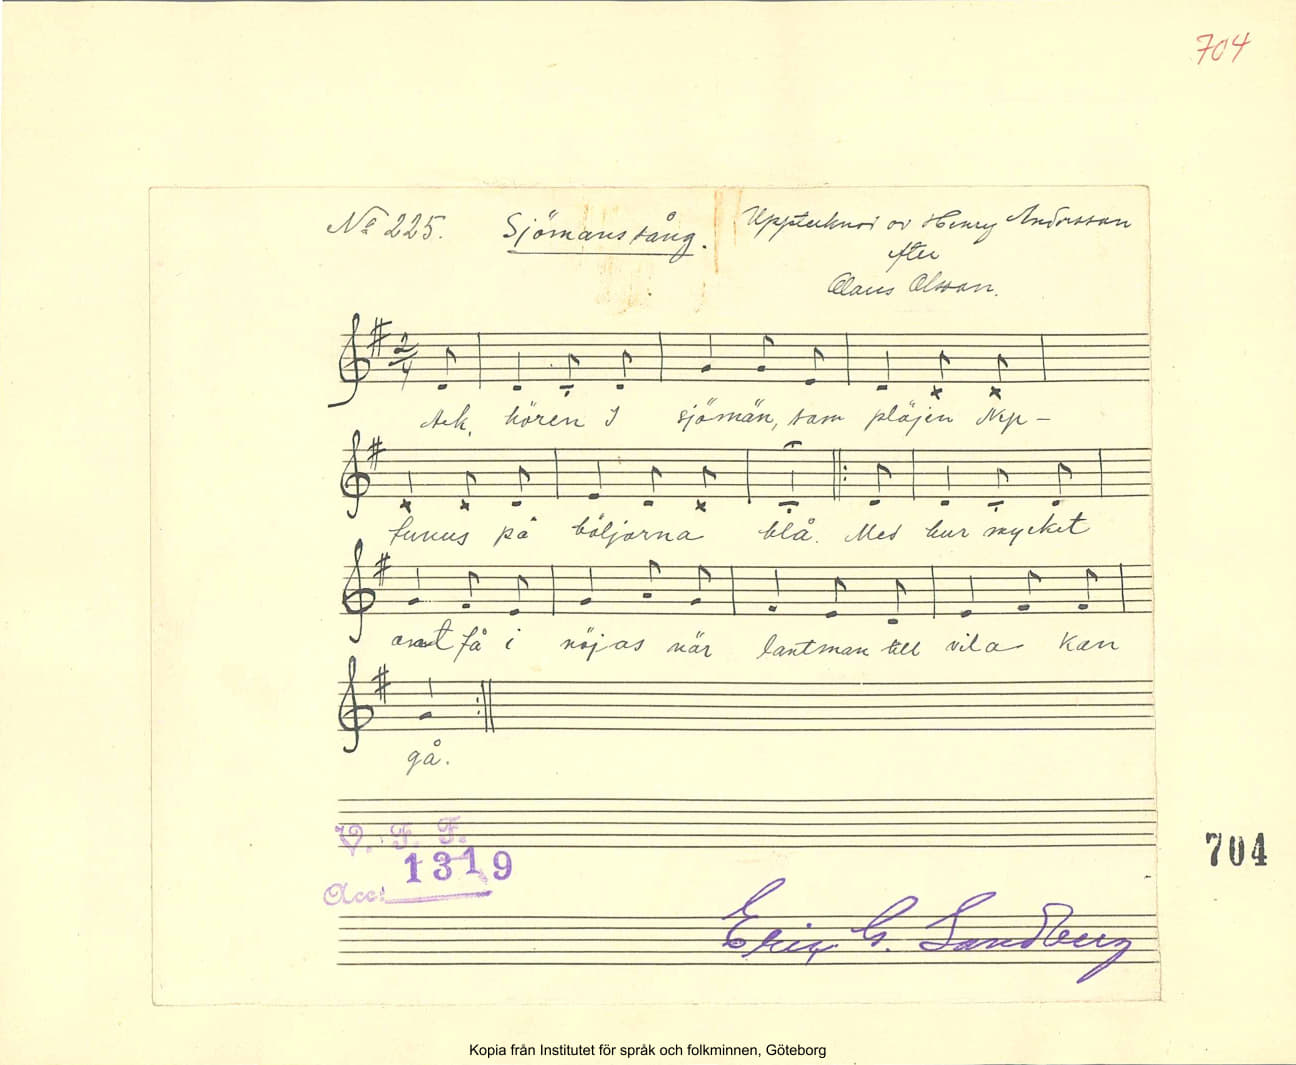 704
No 225. Sjömanssång. Uppteknad av Henry Andersson
efter
Claus Olsson.
2/4
Ack, hören I sjömän, som plöjen Nep-
tunus på böljorna blå. Med hur mycket
annat få i nöjas när lantman till vila kan
gå.
V. F. F.
1319
Acc:
704
Eric G. Sandberg
Kopia från Institutet för språk och folkminnen, Göteborg